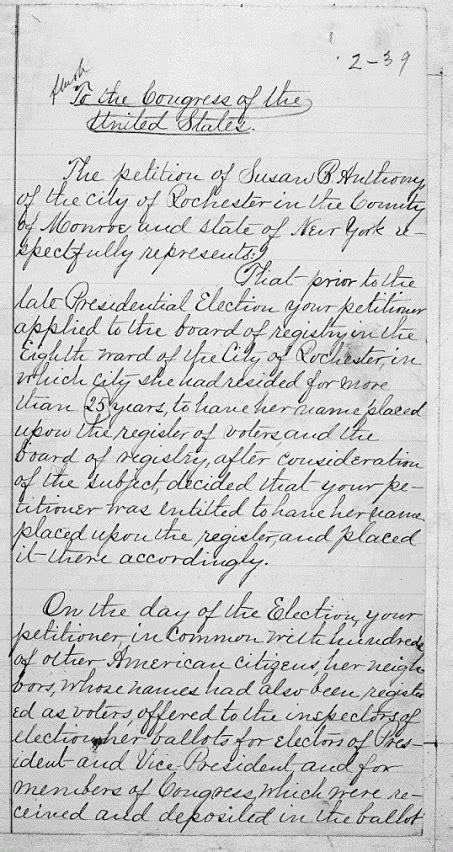 2-39
flush
To the Congress of the
United States.
The petition of Susan B Anthony,
of the city of Rochester in the County
of Monroe and state of New York re-
spectfully represents:
That prior to the
late Presidential Election your petitioner
applied to the board of registry in the
Eighth ward of the City of Rochester, in
which city she had resided for more
than 25 years, to have her name placed
upon the register of voters and the
board of registry, after consideration
of the subject, decided that your pe-
titioner was entitled to have her name
placed upon the register, and placed
it there accordingly.
On the day of the Election, your
petitioner, in common with hundreds
of other American citizens, her neigh
bors, whose names had also been register
ed as voters, offered to the inspectors of
election, her ballots for electors of Pres-
ident and Vice-President, and for
members of Congress, which were re-
ceived and deposited in the ballot